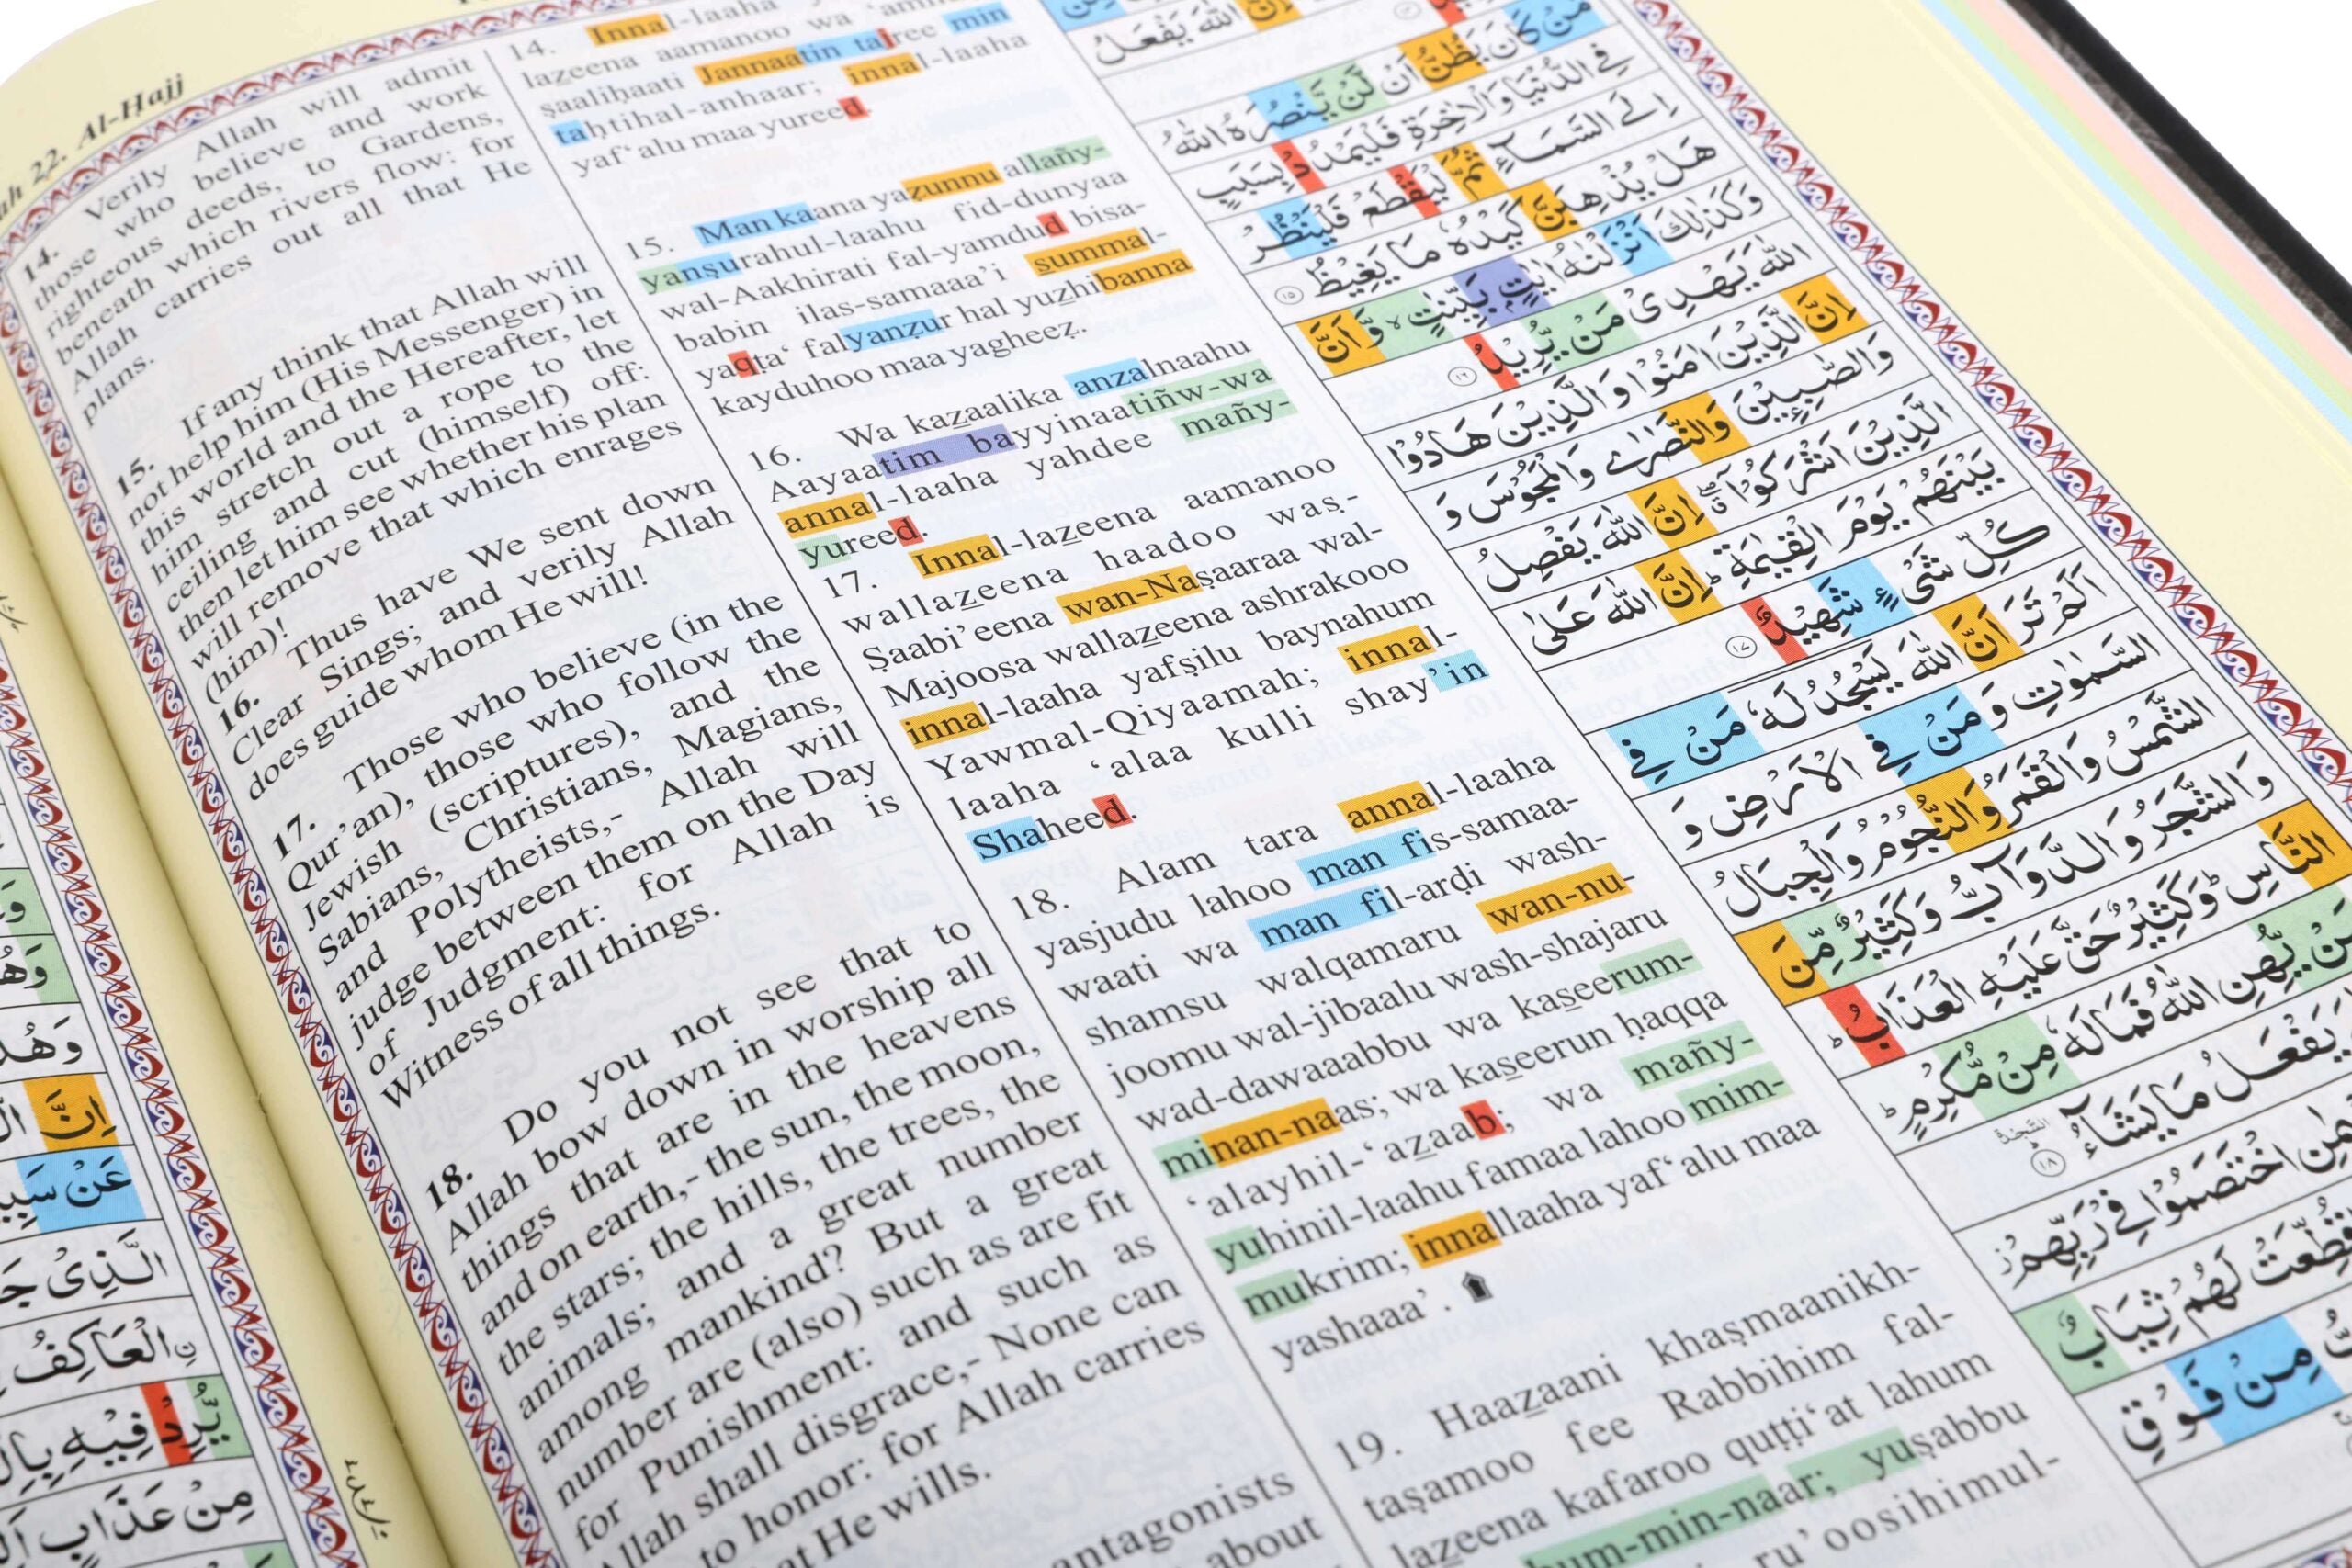 22. Al-Hajj
14. Verily Allah will admit
those who believe and work
righteous deeds, to Gardens,
beneath which rivers flow: for
Allah carries out all that He
plans.
15. If any think that Allah will
not help him (His Messenger) in
this world and the Hereafter, let
him stretch out a rope to the
ceiling and cut (himself) off:
then let him see whether his plan
will remove that which enrages
(him)!
16. Thus have We sent down
Clear Sings; and verily Allah
does guide whom He will!
17. Those who believe (in the
Qur'an), those who follow the
Jewish (scriptures), and the
Sabians, Christians, Magians,
and Polytheists,- Allah will
judge between them on the Day
of Judgment: for Allah is
Witness of all things.
18. Do you not see that to
Allah bow down in worship all
things that are in the heavens
and on earth,- the sun, the moon,
the stars; the hills, the trees, the
animals; and a great number
among mankind? But a great
number are (also) such as are fit
for Punishment: and such as
Allah shall disgrace,- None can
to honor: for Allah carries
He wills.
antagonists
about
14. Innal-laaha
lazeena aamanoo wa
ṣaaliḥaati Jannaatin tajree min
taḥtihal-anhaar; innal-laaha
yaf‘alu maa yureed.
15. Man kaana yaẓunnu allañy-
yanṣurahul-laahu fid-dunyaa
wal-Aakhirati fal-yamdud bisa-
babin ilas-samaaa’i summal-
yaqṭa‘ falyanẓur hal yuzhibanna
kayduhoo maa yagheeẓ.
16. Wa kazaalika anzalnaahu
Aayaatim bayyinaatiñw-wa
annal-laaha yahdee mañy-
yureed.
17. Innal-lazeena aamanoo
wallazeena haadoo waṣ-
Ṣaabi’eena wan-Naṣaaraa wal-
Majoosa wallazeena ashrakooo
innal-laaha yafṣilu baynahum
Yawmal-Qiyaamah; innal-
laaha ‘alaa kulli shay’in
Shaheed.
18. Alam tara annal-laaha
yasjudu lahoo man fis-samaa-
waati wa man fil-arḍi wash-
shamsu walqamaru wan-nu-
joomu wal-jibaalu wash-shajaru
wad-dawaaabbu wa kaseerum-
minan-naas; wa kaseerun ḥaqqa
‘alayhil-‘azaab; wa mañy-
yuhinil-laahu famaa lahoo mim-
mukrim; innallaaha yaf‘alu maa
yashaaa’.
19. Haazaani khaṣmaanikh-
taṣamoo fee Rabbihim fal-
lazeena kafaroo quṭṭi‘at lahum
min-naar; yuṣabbu
ru’oosihimul-
اِنَّ اللّٰهَ يَفْعَلُ
مَنْ كَانَ يَظُنُّ اَنْ لَّنْ يَّنْصُرَهُ اللّٰهُ
فِي الدُّنْيَا وَالْاٰخِرَةِ فَلْيَمْدُدْ بِسَبَبٍ
اِلَى السَّمَآءِ ثُمَّ لْيَقْطَعْ فَلْيَنْظُرْ
هَلْ يُذْهِبَنَّ كَيْدُهٗ مَا يَغِيْظُ ١٥
وَكَذٰلِكَ اَنْزَلْنٰهُ اٰيٰتٍۭ بَيِّنٰتٍ ۙ وَّاَنَّ
اللّٰهَ يَهْدِيْ مَنْ يُّرِيْدُ ١٦
اِنَّ الَّذِيْنَ اٰمَنُوْا وَالَّذِيْنَ هَادُوْا
وَالصّٰبِـِٕيْنَ وَالنَّصٰرٰى وَالْمَجُوْسَ وَ
الَّذِيْنَ اَشْرَكُوْٓا ۖ اِنَّ اللّٰهَ يَفْصِلُ
بَيْنَهُمْ يَوْمَ الْقِيٰمَةِ ؕ اِنَّ اللّٰهَ عَلٰى
كُلِّ شَيْءٍ شَهِيْدٌ ١٧
اَلَمْ تَرَ اَنَّ اللّٰهَ يَسْجُدُ لَهٗ مَنْ فِي
السَّمٰوٰتِ وَ مَنْ فِي الْاَرْضِ وَ
الشَّمْسُ وَالْقَمَرُ وَالنُّجُوْمُ وَالْجِبَالُ
وَالشَّجَرُ وَالدَّوَآبُّ وَكَثِيْرٌ مِّنَ
النَّاسِ ؕ وَكَثِيْرٌ حَقَّ عَلَيْهِ الْعَذَابُ ؕ
مَنْ يُّهِنِ اللّٰهُ فَمَا لَهٗ مِنْ مُّكْرِمٍ ؕ
يَفْعَلُ مَا يَشَآءُ ١٨
اخْتَصَمُوْا فِيْ رَبِّهِمْ ز
قُطِّعَتْ لَهُمْ ثِيَابٌ
مِنْ فَوْقِ
اِنَّ
عَنْ
الَّذِيْ
الْعَاكِفُ
يُّرِدْ فِيْهِ
مِنْ عَذَابٍ